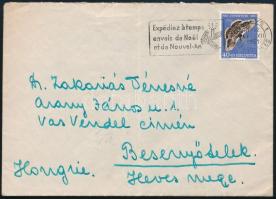 Expédiez à temps
envois de Noël
et de Nouvel-An
40
HELVETIA
Dr. Zakariás Dénesné
Arany János u. 1.
Vas Vendel címén
Besenyőtelek.
Hongrie.
Heves mege.